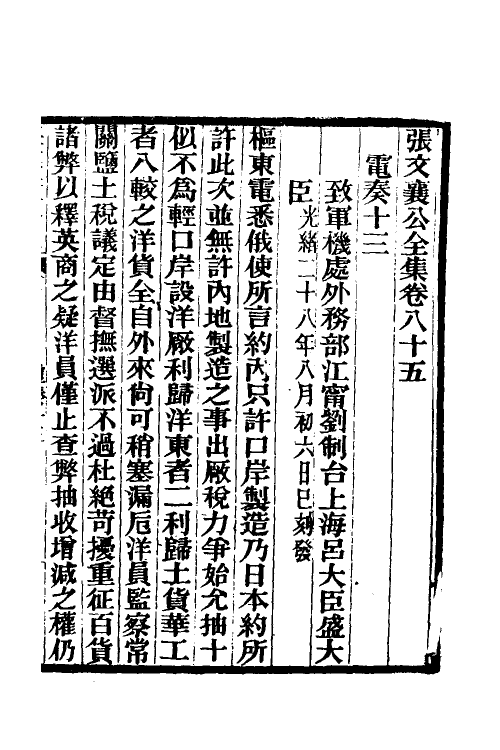 張文襄公全集卷八十五
電奏十三
致軍機處外務部江甯劉制台上海呂大臣盛大
臣光緒二十八年八月初六日巳刻發
樞東電悉俄使所言約內只許口岸製造乃日本約所
許此次並無許內地製造之事出厰稅力爭始允抽十
似不為輕口岸設洋厰利歸洋東者二利歸土貨華工
者八較之洋貨全自外來尙可稍塞漏卮洋員監察常
關鹽土稅議定由督撫選派不過杜絕苛擾重征百貨
諸弊以釋英商之疑洋員僅止查弊抽收增減之權仍